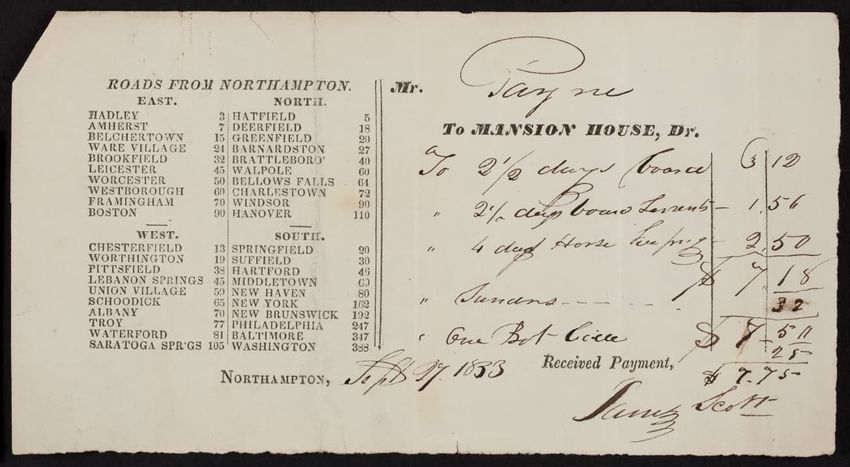 ROADS FROM NORTHAMPTON.
EAST.
HADLEY 3
AMHERST 7
BELCHERTOWN 15
WARE VILLAGE 24
BROOKFIELD 32
LEICESTER 45
WORCESTER 50
WESTBOROUGH 60
FRAMINGHAM 70
BOSTON 90
NORTH.
HATFIELD 5
DEERFIELD 18
GREENFIELD 20
BARNARDSTON 27
BRATTLEBORO' 40
WALPOLE 60
BELLOWS FALLS 64
CHARLESTOWN 72
WINDSOR 90
HANOVER 110
WEST.
CHESTERFIELD 13
WORTHINGTON 19
PITTSFIELD 38
LEBANON SPRINGS 45
UNION VILLAGE 59
SCHOODICK 65
ALBANY 70
TROY 77
WATERFORD 81
SARATOGA SPR'GS 105
SOUTH.
SPRINGFIELD 20
SUFFIELD 30
HARTFORD 46
MIDDLETOWN 60
NEW HAVEN 80
NEW YORK 162
NEW BRUNSWICK 192
PHILADELPHIA 247
BALTIMORE 347
WASHINGTON 388
NORTHAMPTON, Sept 27. 1833
Mr. Payne
To MANSION HOUSE, Dr.
To 2 1/2 days board 3 12
" 2 1/2 days board 1.56
" 4 days Horse keeping 2.50
$ 7.18
" 32
" One Bot $ 7-50
25
Received Payment, $ 7.75
James Scott